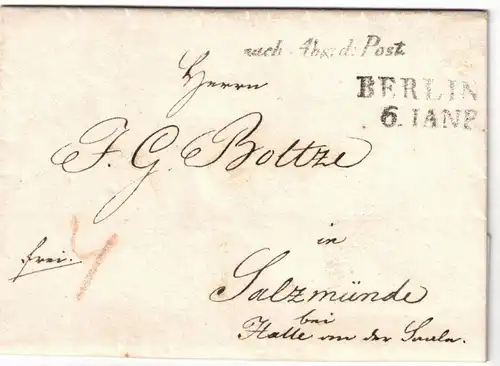 nach Abg: d: Post.
BERLIN
6. IANR
Herrn
J. G. Boltze
in
frei.
4
Salzmünde
bei
Halle an der Saale.